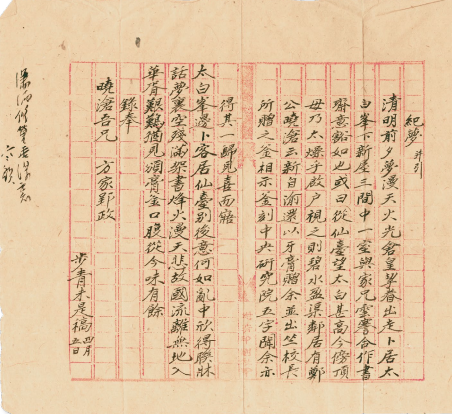 紀夢 并引
清明前夕夢漫天火光倉皇挈眷出走卜居太
白峯下新屋三間中一室與家兄雲書合作書
齋意豁如也或曰從仙臺望太白甚高今傍頂
毋乃太燥予啟戶視之則碧水盈渠鄰居有鄭
公曉滄云新自渝還以牙膏贈余並出竺校長
所贈之金相示金刻中央研究院五字開余亦
得其一歸見喜而寤
太白峯邊卜客居仙臺別後意何如亂中欣得聯牀
話夢裏空殘滿架書烽火漫天悲故國流離無地入
華胥艱難猶見須膏金口腹從今味有餘
錄奉
曉滄吾兄 方家郢政
步青未是稿 四月五日